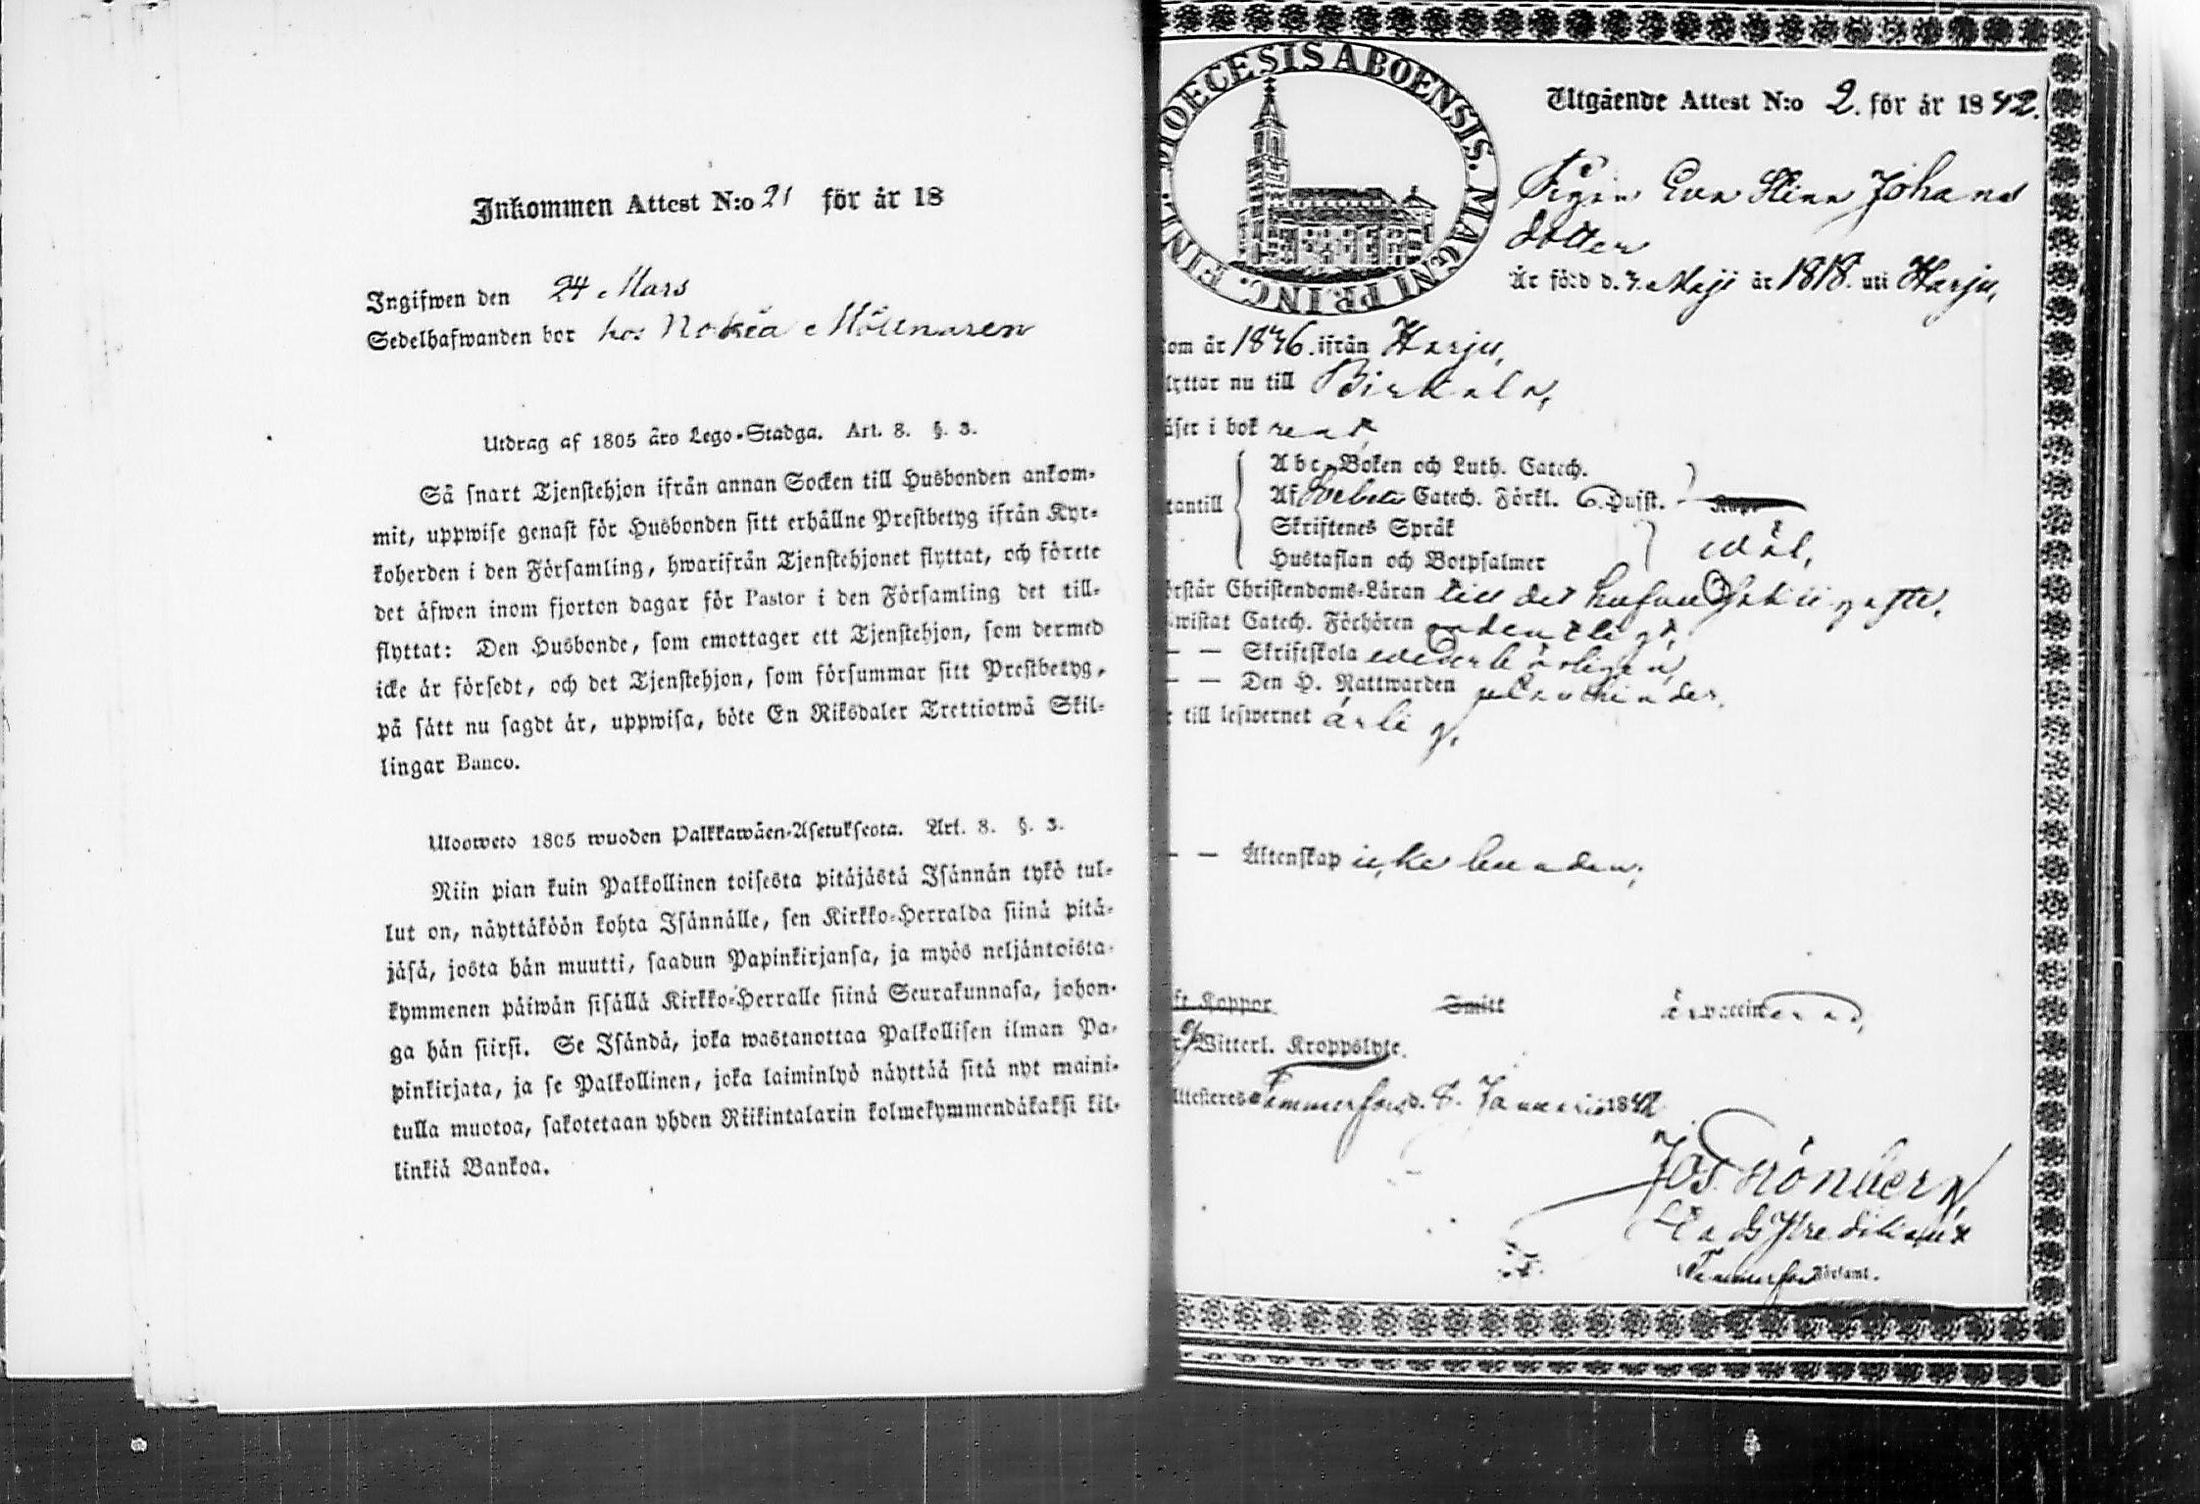 Inkommen Attest N:o 21 för år 18
Ingifwen den 24 Mars
Sedelhafwanden bor hos Nokia Möllnaren
Utdrag af 1805 års Lego-Stadga. Art. 8. §. 3.
Så snart Tjenstehjon ifrån annan Socken till Husbonden ankom-
mit, uppwise genast för Husbonden sitt erhållne Prestbetyg ifrån Kyr-
koherden i den Församling, hwarifrån Tjenstehjonet flyttat, och förete
det äfwen inom fjorton dagar för Pastor i den Församling det till-
flyttat: Den Husbonde, som emottager ett Tjenstehjon, som dermed
icke är försedt, och det Tjenstehjon, som försummar sitt Prestbetyg,
på sätt nu sagdt är, uppwisa, böte En Riksdaler Trettiotwå Skil-
lingar Banco.
Ulosweto 1805 wuoden Palkkawäen-Asetuksesta. Art. 8. §. 3.
Niin pian kuin Palkollinen toisesta pitäjästä Isännän tykö tul-
lut on, näyttäköön kohta Isännälle, sen Kirkko-Herralda siinä pitä-
jäsä, josta hän muutti, saadun Papinkirjansa, ja myös neljäntoista-
kymmenen päiwän sisällä Kirkko-Herralle siinä Seurakunnasa, johon-
ga hän siirsi. Se Isändä, joka wastanottaa Palkollisen ilman Pa-
pinkirjata, ja se Palkollinen, joka laiminlyö näyttää sitä nyt maini-
tulla muotoa, sakotetaan yhden Riikintalarin kolmekymmendäkaksi kil-
linkiä Bankoa.
DIOECESIS ABOENSIS. MAGNI PRINC. FINL.
Utgående Attest N:o 2. för år 1842.
Pigan Eva Stina Johans
dotter
Är född d. 7. Maji år 1818. uti Harju,
om år 1836. ifrån Harju,
lyttar nu till Birkala,
äser i bok rent,
Abc-Boken och Luth. Catech.
Af Catech. Förkl. Dufst.
tantill
Skriftenes Språk
Hustaflan och Botpsalmer
wäl,
örstår Christendoms-Läran till det hufvudsakligaste.
wistat Catech. Förhören ordentligt,
— — Skriftskola wederbörligen,
— — Den H. Nattwarden
till lefwernet ärlig,
— — Äktenskap icke bunden,
ft Koppor Smitt är vaccinerad,
Witterl. Kroppslyte.
Attesteres Tammerfors d. 8. Januarii 1842
Jos. Grönberg
Tammerfors Församl.